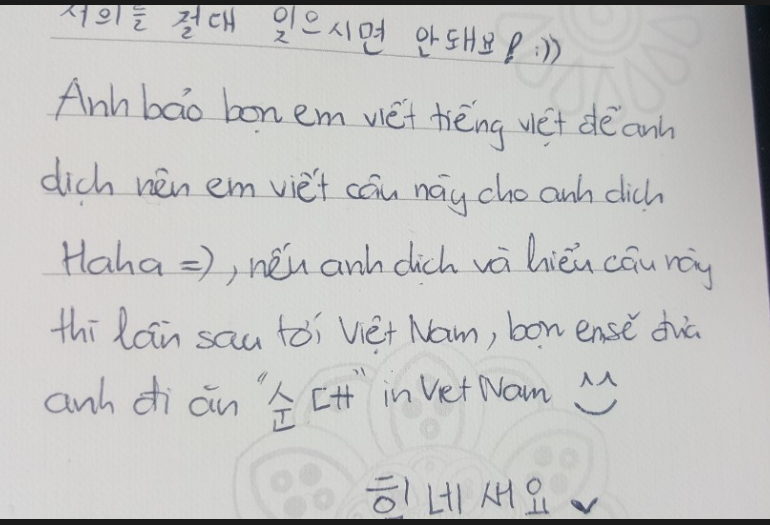 저희들 절대 잊으시면 안돼요! :))
Anh bảo bọn em viết tiếng việt để anh
dịch nên em viết câu này cho anh dịch
Haha =), nếu anh dịch và hiểu câu này
thì lần sau tới Việt Nam, bọn em sẽ đưa
anh đi ăn "순대" in Viet Nam ^^
힌네새요